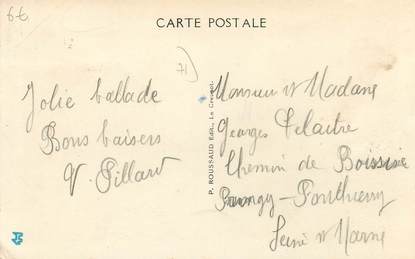 6€
CARTE POSTALE
71
Jolie ballade
Bons baisers
V. Pillard
P. ROUSSAUD Édit., Le Creusot.
Monsieur et Madame
Georges
Chemin de Boissise
Pringy-Ponthierry
Seine et Marne